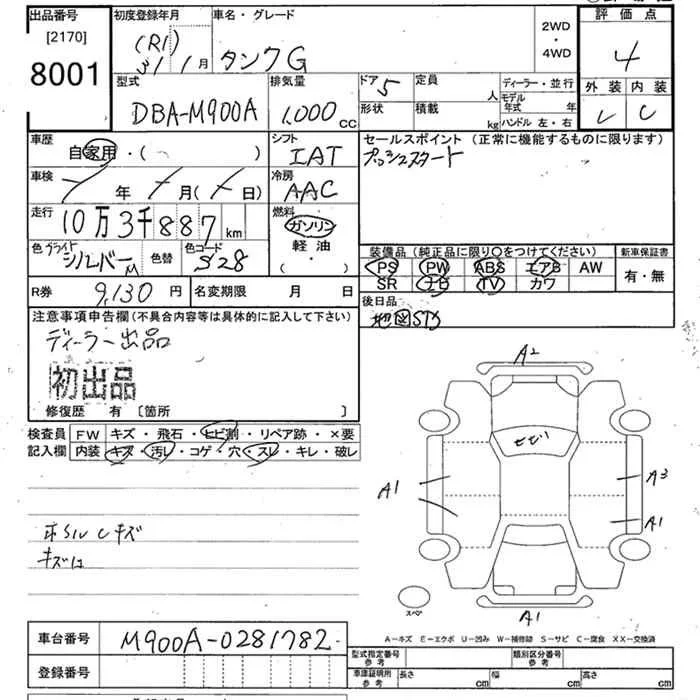 出品番号 初度登録年月 車名・グレード 評価点
[2170] (R1) 2WD
8001 31年1月 タンクG ・4WD 4
型式 排気量 ドア5 定員 人 ディーラー・並行 外装 内装
DBA-M900A 1,000 cc 形状 積載 kg モデル年式 年 C
ハンドル 左・右
車歴 自家用・( ) シフト IAT セールスポイント (正常に機能するものに限ります)
車検 年 月 ( 日) 冷房 AAC プッシュスタート
走行 10万3千887 km 燃料 ガソリン
軽油
( ・ )
色 ブライトシルバーM 色替 色コード S28
装備品 (純正品に限り〇をつけてください) 新車保証書
PS PW ABS エアB AW 有・無
SR ナビ TV カワ
R券 9,130円 名変期限 月 日 後日品
地図STS
注意事項申告欄 (不具合内容等は具体的に記入して下さい)
ディーラー出品
初出品
修復歴 有 [箇所 ]
検査員 FW キズ・飛石・ヒビ割・リペア跡・×要
記入欄 内装 キズ・汚レ・コゲ・穴・スレ・キレ・破レ
A2
A1 A3
A1
スペア
A1
キズ
キズは
A－キズ E－エクボ U－凹み W－補修跡 S－サビ C－腐食 XX－交換済
車台番号 M900A-0281782
型式指定番号 参考 類別区分番号 参考
登録番号 車庫証明用 参考 長さ cm 幅 cm 高さ cm